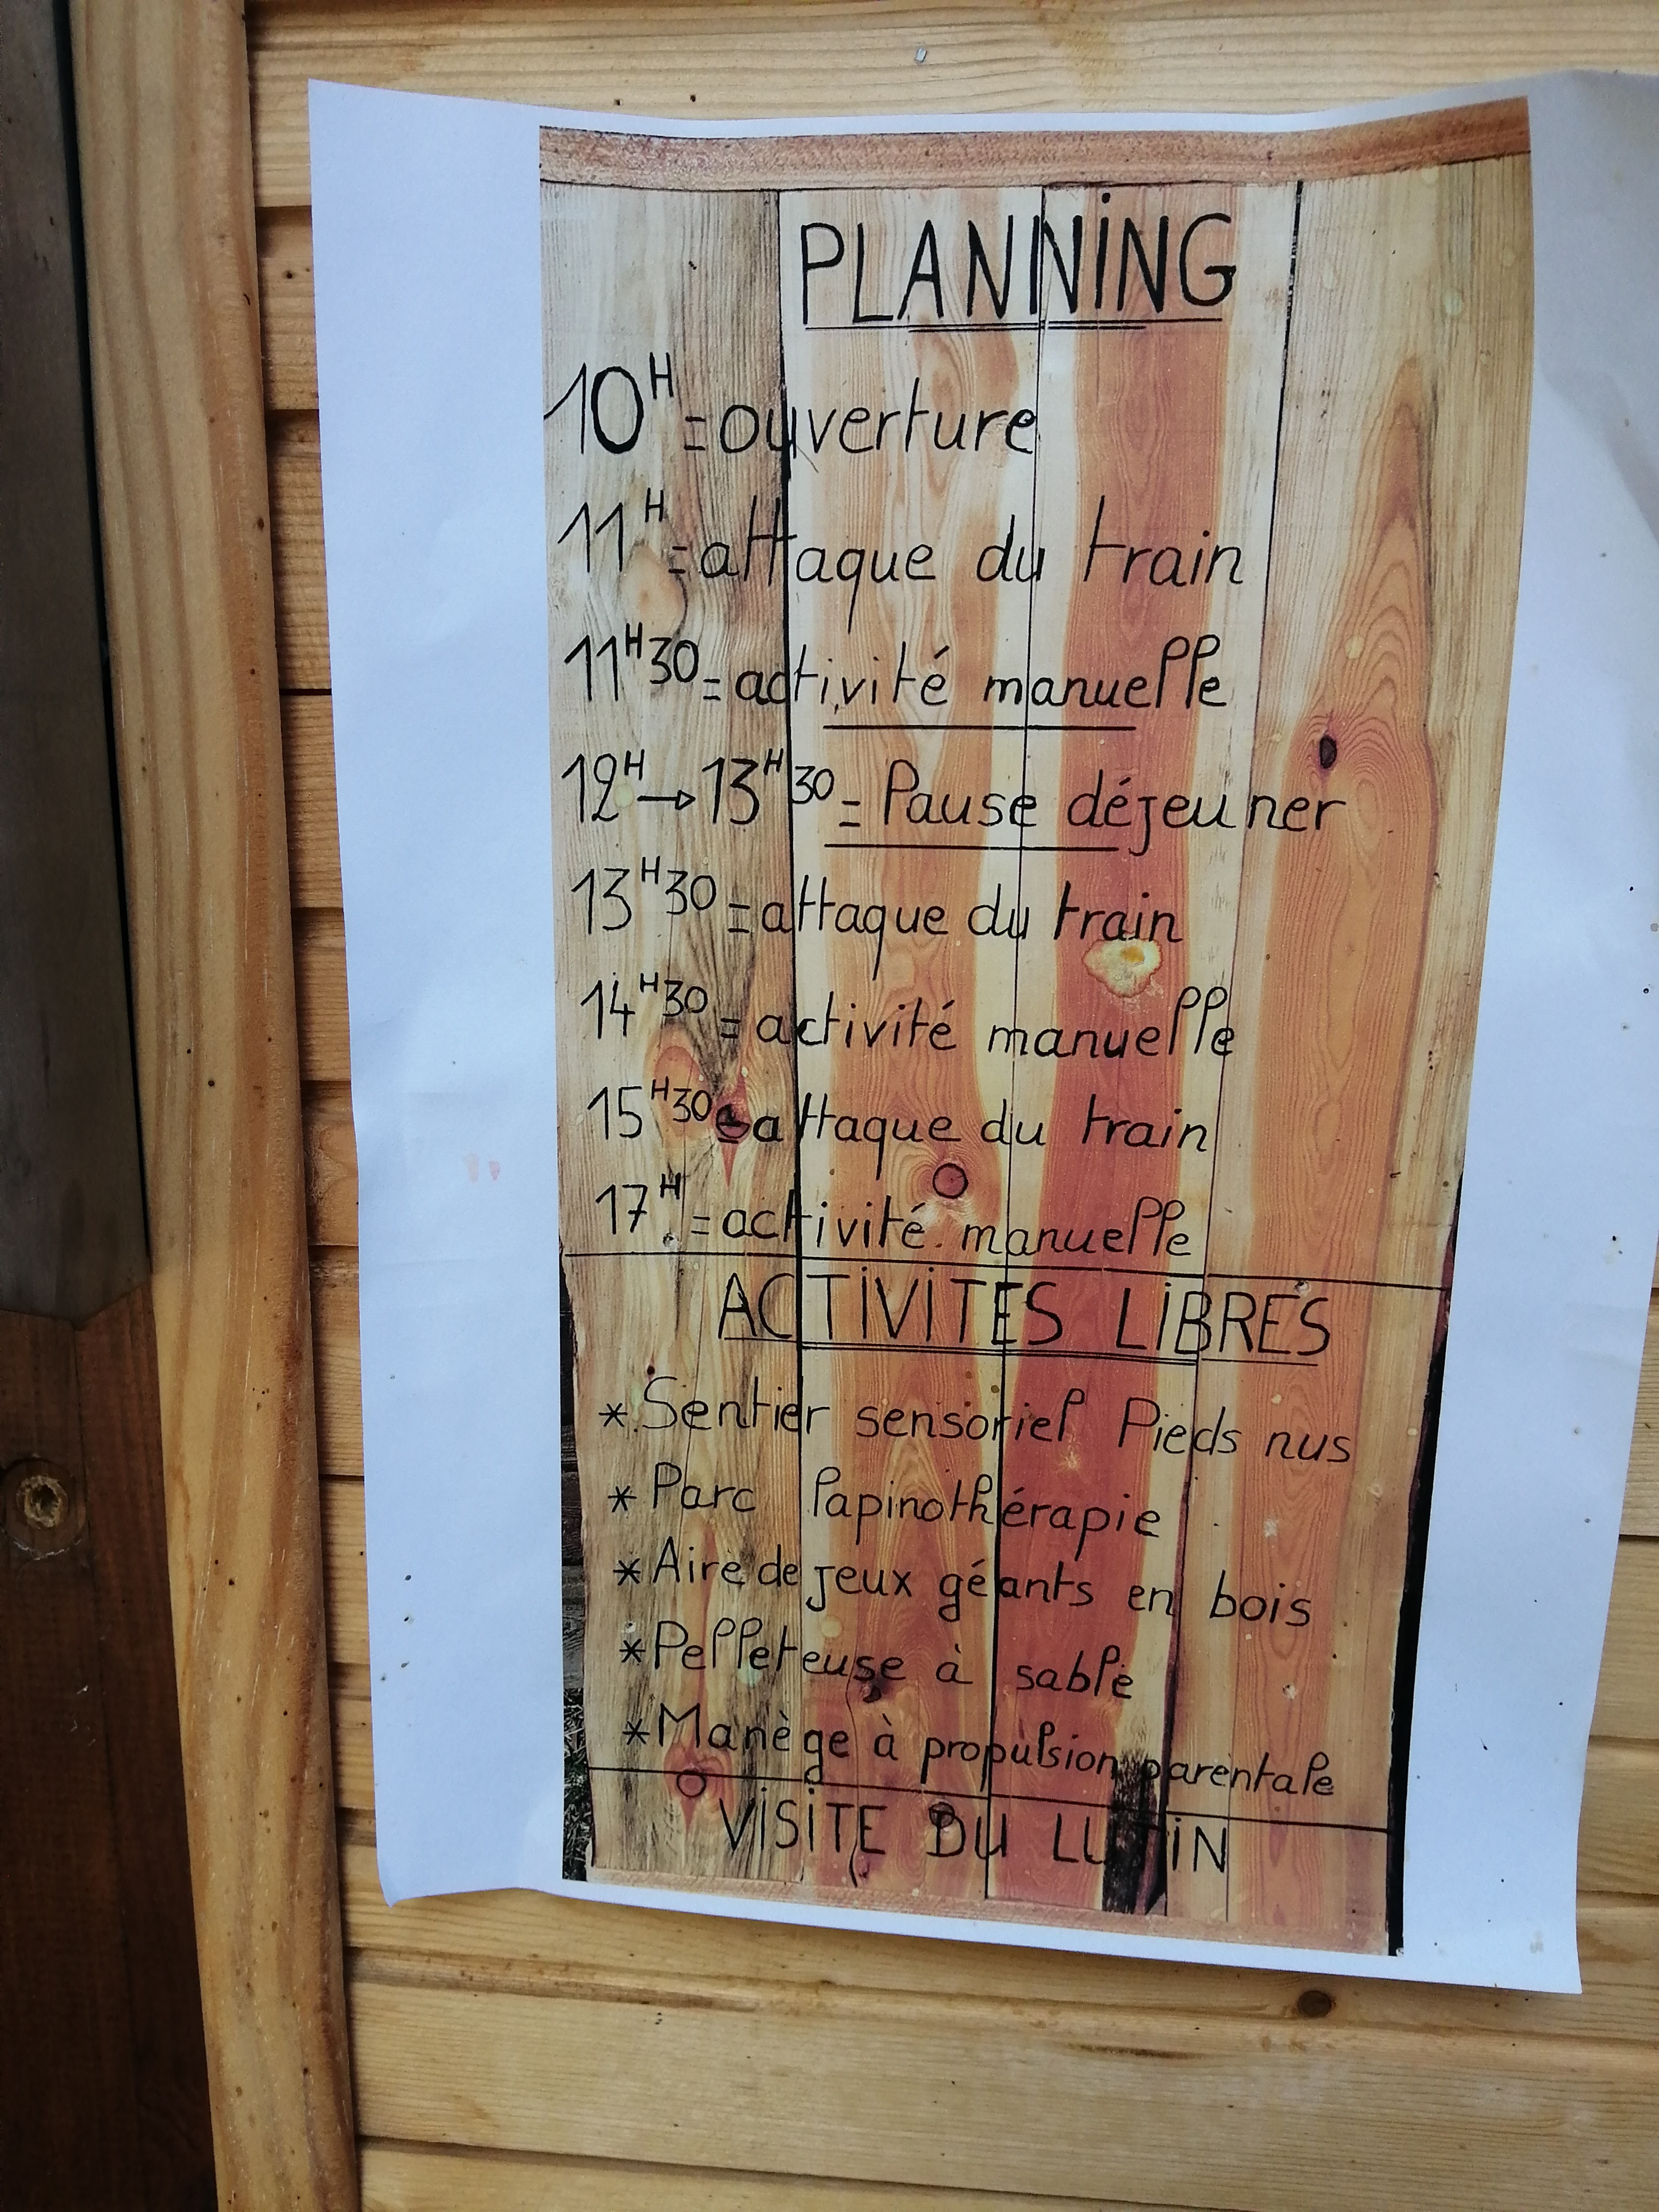 PLANNING
10H = ouverture
11H = attaque du train
11H30 = activité manuelle
12H → 13H30 = Pause déjeuner
13H30 = attaque du train
14H30 = activité manuelle
15H30 = attaque du train
17H = activité manuelle
ACTIVITES LIBRES
* Sentier sensoriel Pieds nus
* Parc Papinothérapie
* Aire de jeux géants en bois
* Pelleteuse à sable
* Manège à propulsion parentale
VISITE DU LUTIN